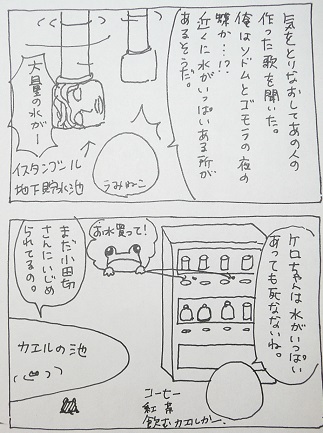 気をとりなおしてあの人の
作った歌を聞いた。
俺はソドムとゴモラの夜の
蝶か…!?
近くに水がいっぱいある所が
あるそうだ。
大量の水がー
イスタンブール
地下貯水池
うみねこ
ケロちゃんは水がいっぱい
あっても死なないね。
お水買って!
まだ小田切
さんにいじめ
られてるの。
カエルの池
コーヒー
紅茶
飲むカエルかー